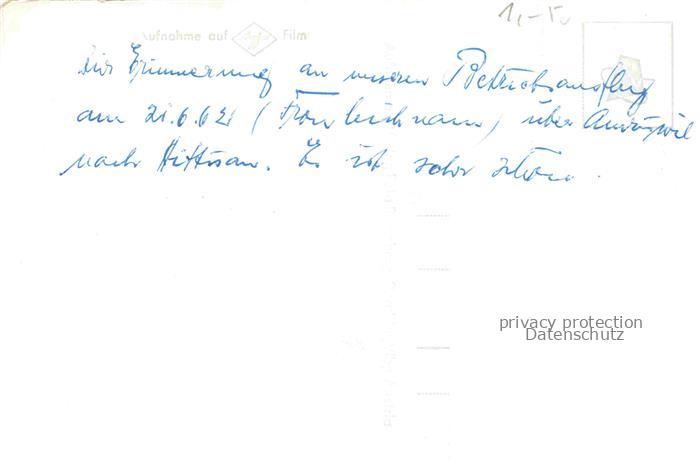 1,-
Aufnahme auf Agfa Film
Zur Erinnerung an unseren Betriebsausflug
am 21.6.62 (Fronleichnam) über
nach Hittisau. Es ist sehr schön.
privacy protection
Datenschutz